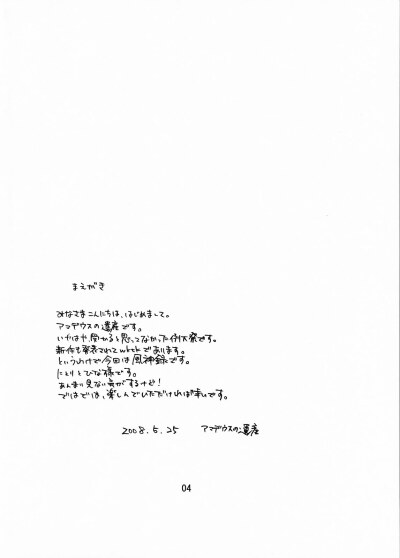 まえがき
みなさまこんにちは、はじめまして。
アマデウスの遺産です。
いやはや間に合うと思ってなかった例大祭です。
新作も発表されてwktkであります。
というわけで今回は風神録です。
にとりとひな様です。
あんまり見ない気がするけど!
ではでは、楽しんでいただければ幸いです。
2008.5.25 アマデウスの遺産
04